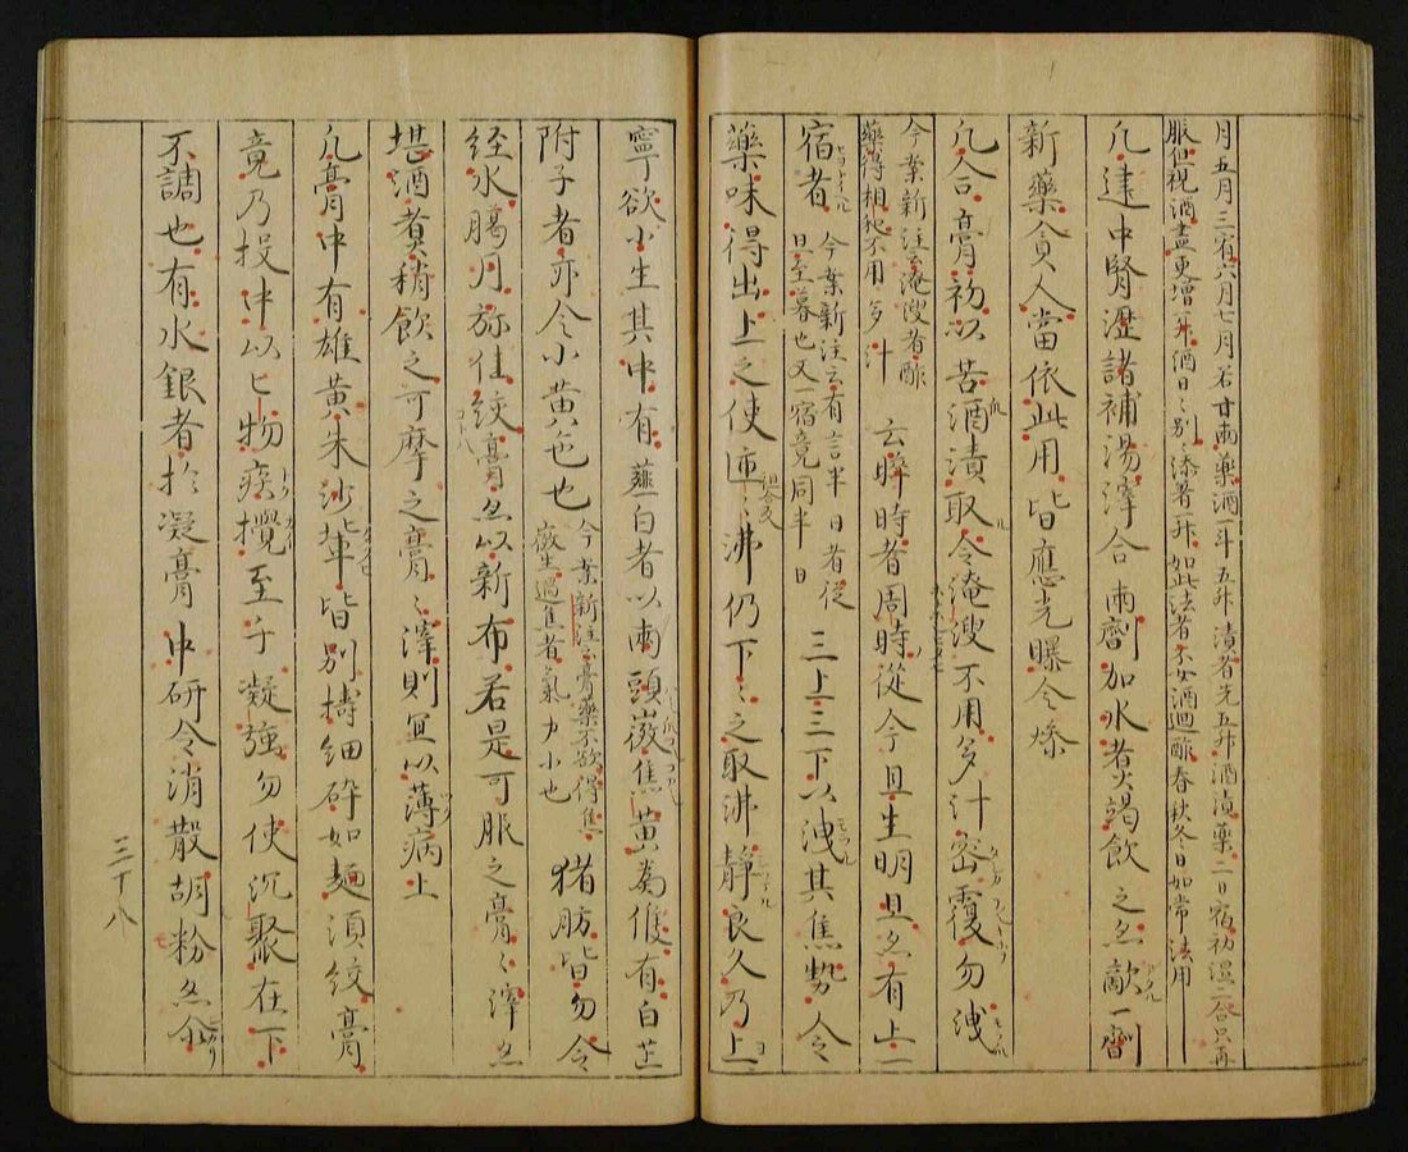 月五月三宿六月七月若甘兩藥酒一斗五升漬者先五升酒漬藥二日宿初湿二合只再
服但視酒盡更増一升酒日〻別〻添著一升如此法者不安酒迴酢春秋冬日如常法用
凡建中腎瀝諸補湯滓合兩劑加水煮竭飲之亦敵一劑
新藥貧人當依此用皆應先曝令燥
凡合膏初以苦酒漬取令淹溲不用多汁密覆勿洩
今案新注云淹溲者酢
藥得相和不用多汁
云晬時者周時從今旦至明旦亦有止一
宿者
今案新注云有言半日者從
旦至暮也又一宿竟同半日
三上三下以洩其焦勢令
藥味得出上之使匝〻沸仍下〻之取沸靜良久乃上
寧欲小生其中有薤白者以兩頭微焦黄為候有白芷
附子者亦令小黄色也
今案新注云膏藥不欲得焦
微生過焦者氣力小也
猪肪皆勿令
経水臈月弥佳絞膏亦以新布若是可服之膏〻滓亦
堪酒煮稍飲之可摩之膏〻滓則冝以薄病上
凡膏中有雄黄朱沙輩皆別擣細碎如麺湏絞膏
竟乃投中以匕物疾攪至于凝強勿使沉聚在下
不調也有水銀者於凝膏中研令消散胡粉亦尒
三十八